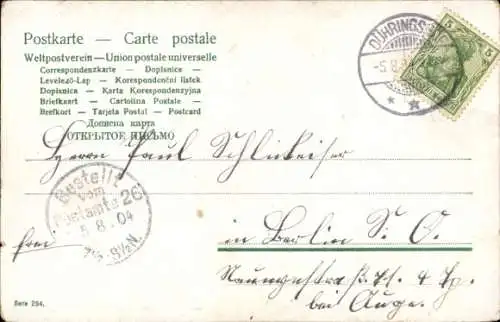 Postkarte — Carte postale
Weltpostverein — Union postale universelle
Correspondenzkarte — Dopisnice —
Levelező-Lap — Korespondenční lístek
Dopisnica — Karta Korespondencyjna
Briefkaart — Cartolina Postale —
Brefkort — Tarjeta Postal — Postcard
Дописна карта
ОТКРЫТОЕ ПИСЬМО
DÜHRINGS
-5.8.
5
5
Herrn Paul Schlickeiser
Bestellt
vom
Postamte 26
5.8.04
7½-8½N.
in Berlin S. O.
4 Tp.
bei Auge.
Serie 294.